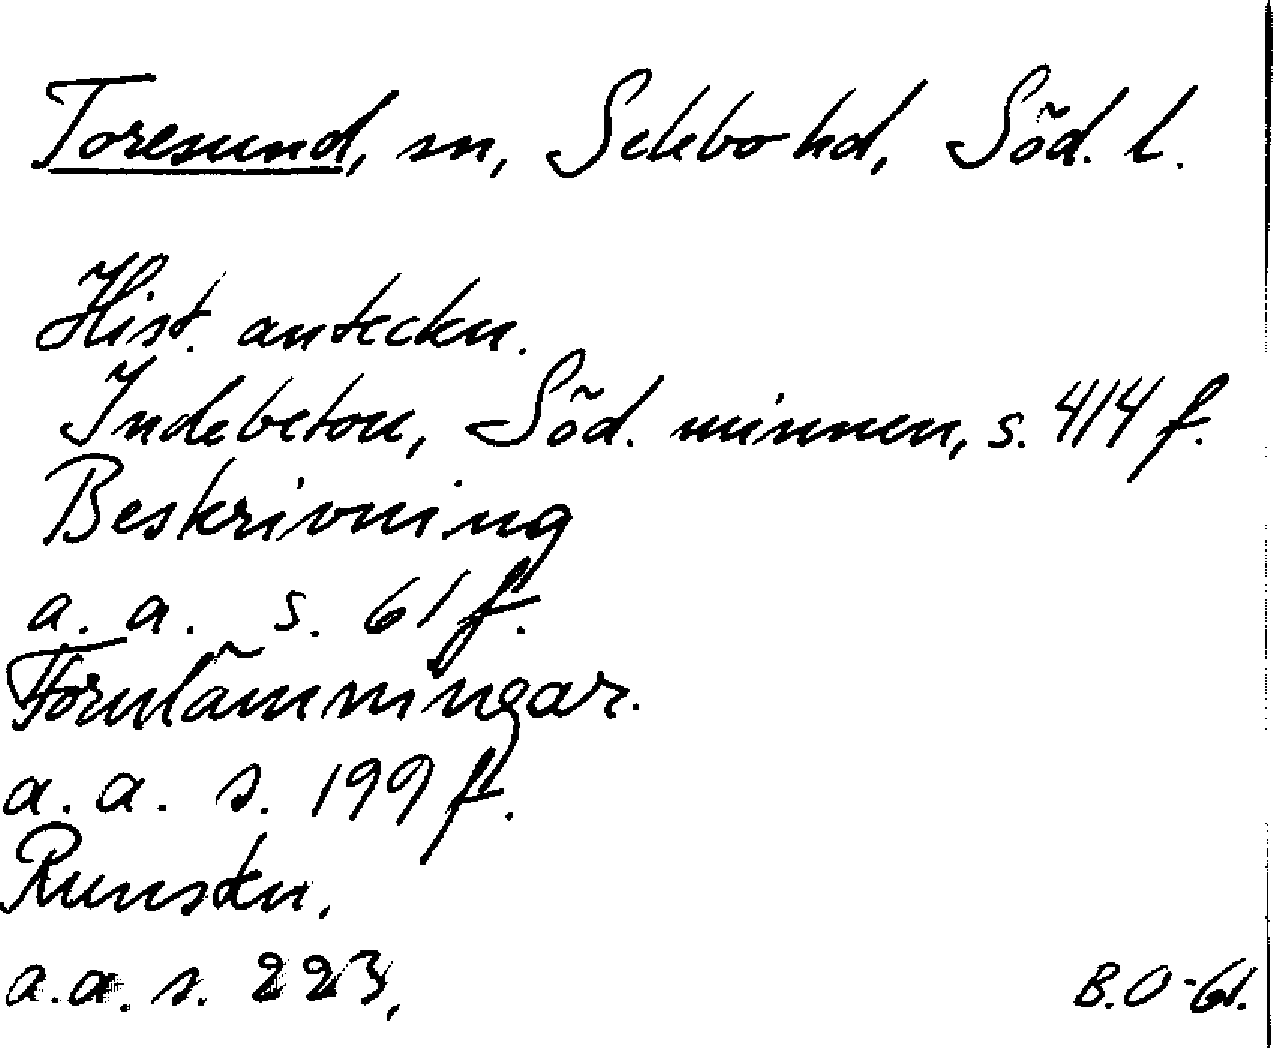 Toresund, sn, Selebo hd, Söd. l.
Hist. anteckn.
Indebetou, Söd. minnen, s. 414 f.
Beskrivning
a. a. s. 61 f.
Fornlämningar.
a. a. s. 199 f.
Runstn.
a. a. s. 223.
B.O-61.